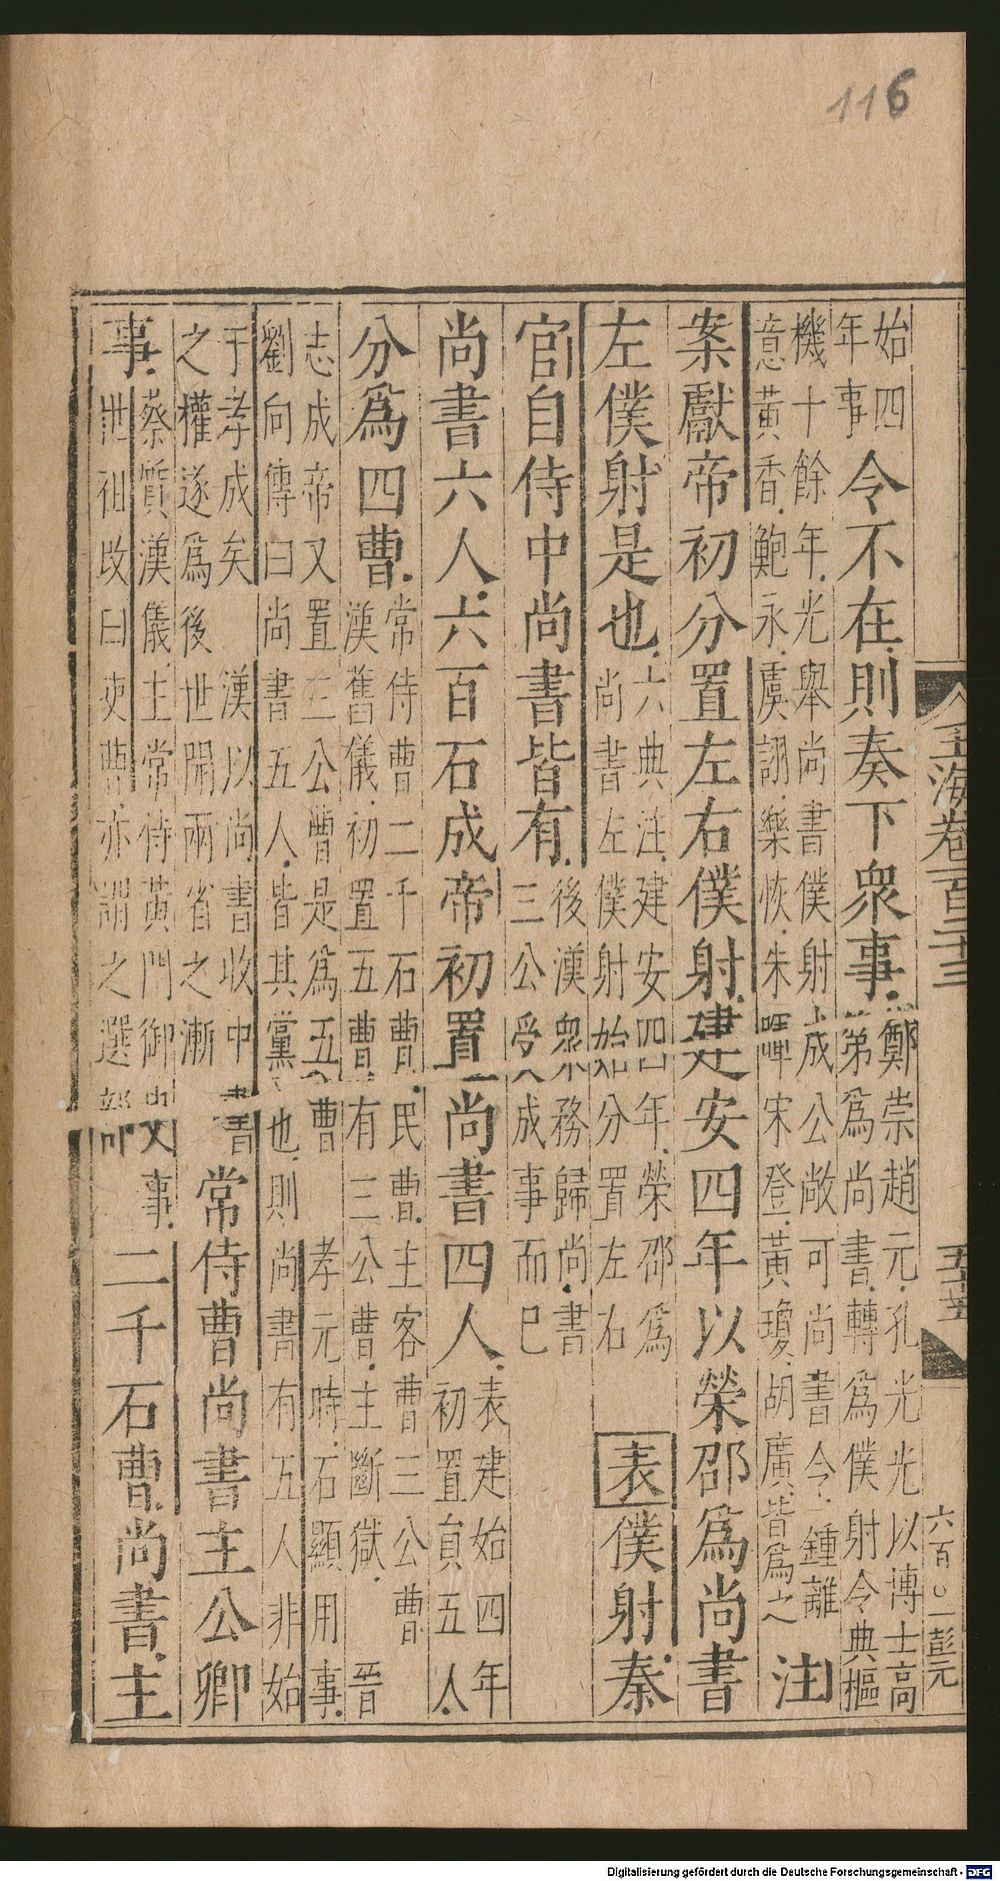 116
玉海卷百二十二
五十五
六百〇一彭元
始四
年事
令不在則奏下衆事
鄭崇趙元孔光光以博士高
第爲尚書轉爲僕射令典樞
機十餘年光舉尚書僕射成公敞可尚書令鍾離
意黃香鮑永虞詡樂恢朱暉宋登黃瓊胡廣皆爲之
注
案獻帝初分置左右僕射建安四年以榮邵爲尚書
左僕射是也
六典注建安四年榮邵爲
尚書左僕射始分置左右
表僕射秦
官自侍中尚書皆有
後漢衆務歸尚書
三公受成事而已
尚書六人六百石成帝初置尚書四人
表建始四年
初置員五人
分爲四曹
常侍曹二千石曹民曹主客曹三公曹
漢舊儀初置五曹有三公曹主斷獄
晉
志成帝又置三公曹是爲五曹
孝元時石顯用事
劉向傳曰尚書五人皆其黨也則尚書有五人非始
于孝成矣
漢以尚書收中書
之權遂爲後世開兩省之漸
常侍曹尚書主公卿
事
蔡質漢儀主常侍黃門御史事
世祖改曰吏曹亦謂之選部
二千石曹尚書主
Digitalisierung gefördert durch die Deutsche Forschungsgemeinschaft - DFG